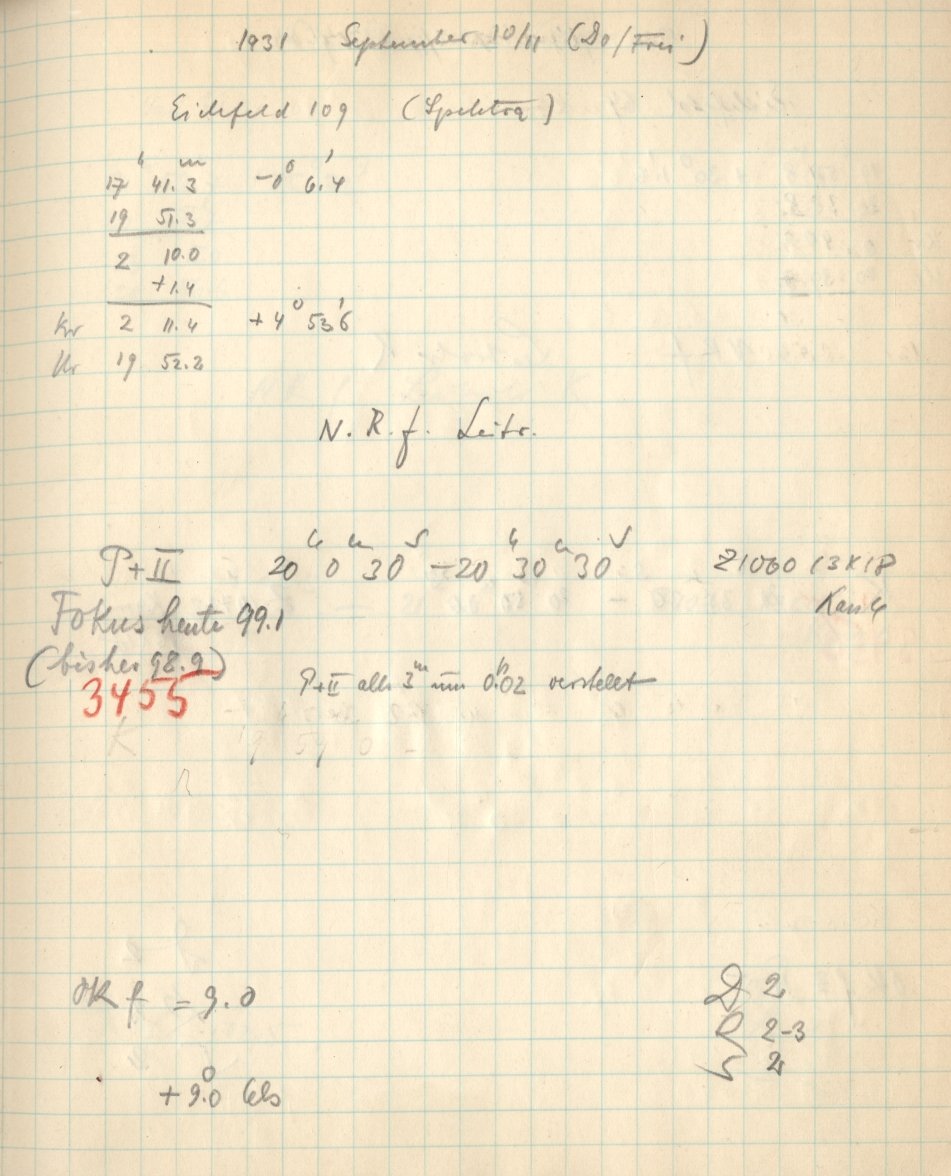 1931 September 10/11 (Do/Frei)
Eichfeld 109 (Spektra)
17h 41.3m -0° 6.4'
19 51.3
2 10.0
+1.4
Kr 2 11.4 +4° 53.6'
Ur 19 52.2
N. R. f. Leitr.
P+II 20h 0m 30s - 20h 30m 30s Z1060 13X18
Fokus heute 99.1
(bisher 98.9)
3455
P+II alle 3m um 0.02 verstellt
K 19 59 0 -
OK f = 9.0
D 2
R 2-3
S 2
+9.0° Cels